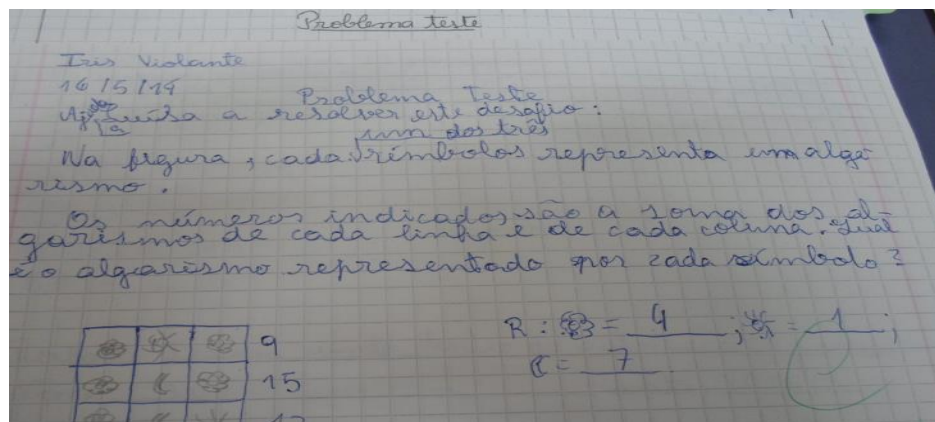 Problema teste
Iris Violante
16/5/14
Problema Teste
Ajuda a Luísa a resolver este desafio:
Na figura, cada um dos três símbolos representa um alga-
rismo.
Os números indicados são a soma dos al-
garismos de cada linha e de cada coluna. Qual
é o algarismo representado por cada símbolo?
R: = 4 ; = 1 ;
= 7
9
15